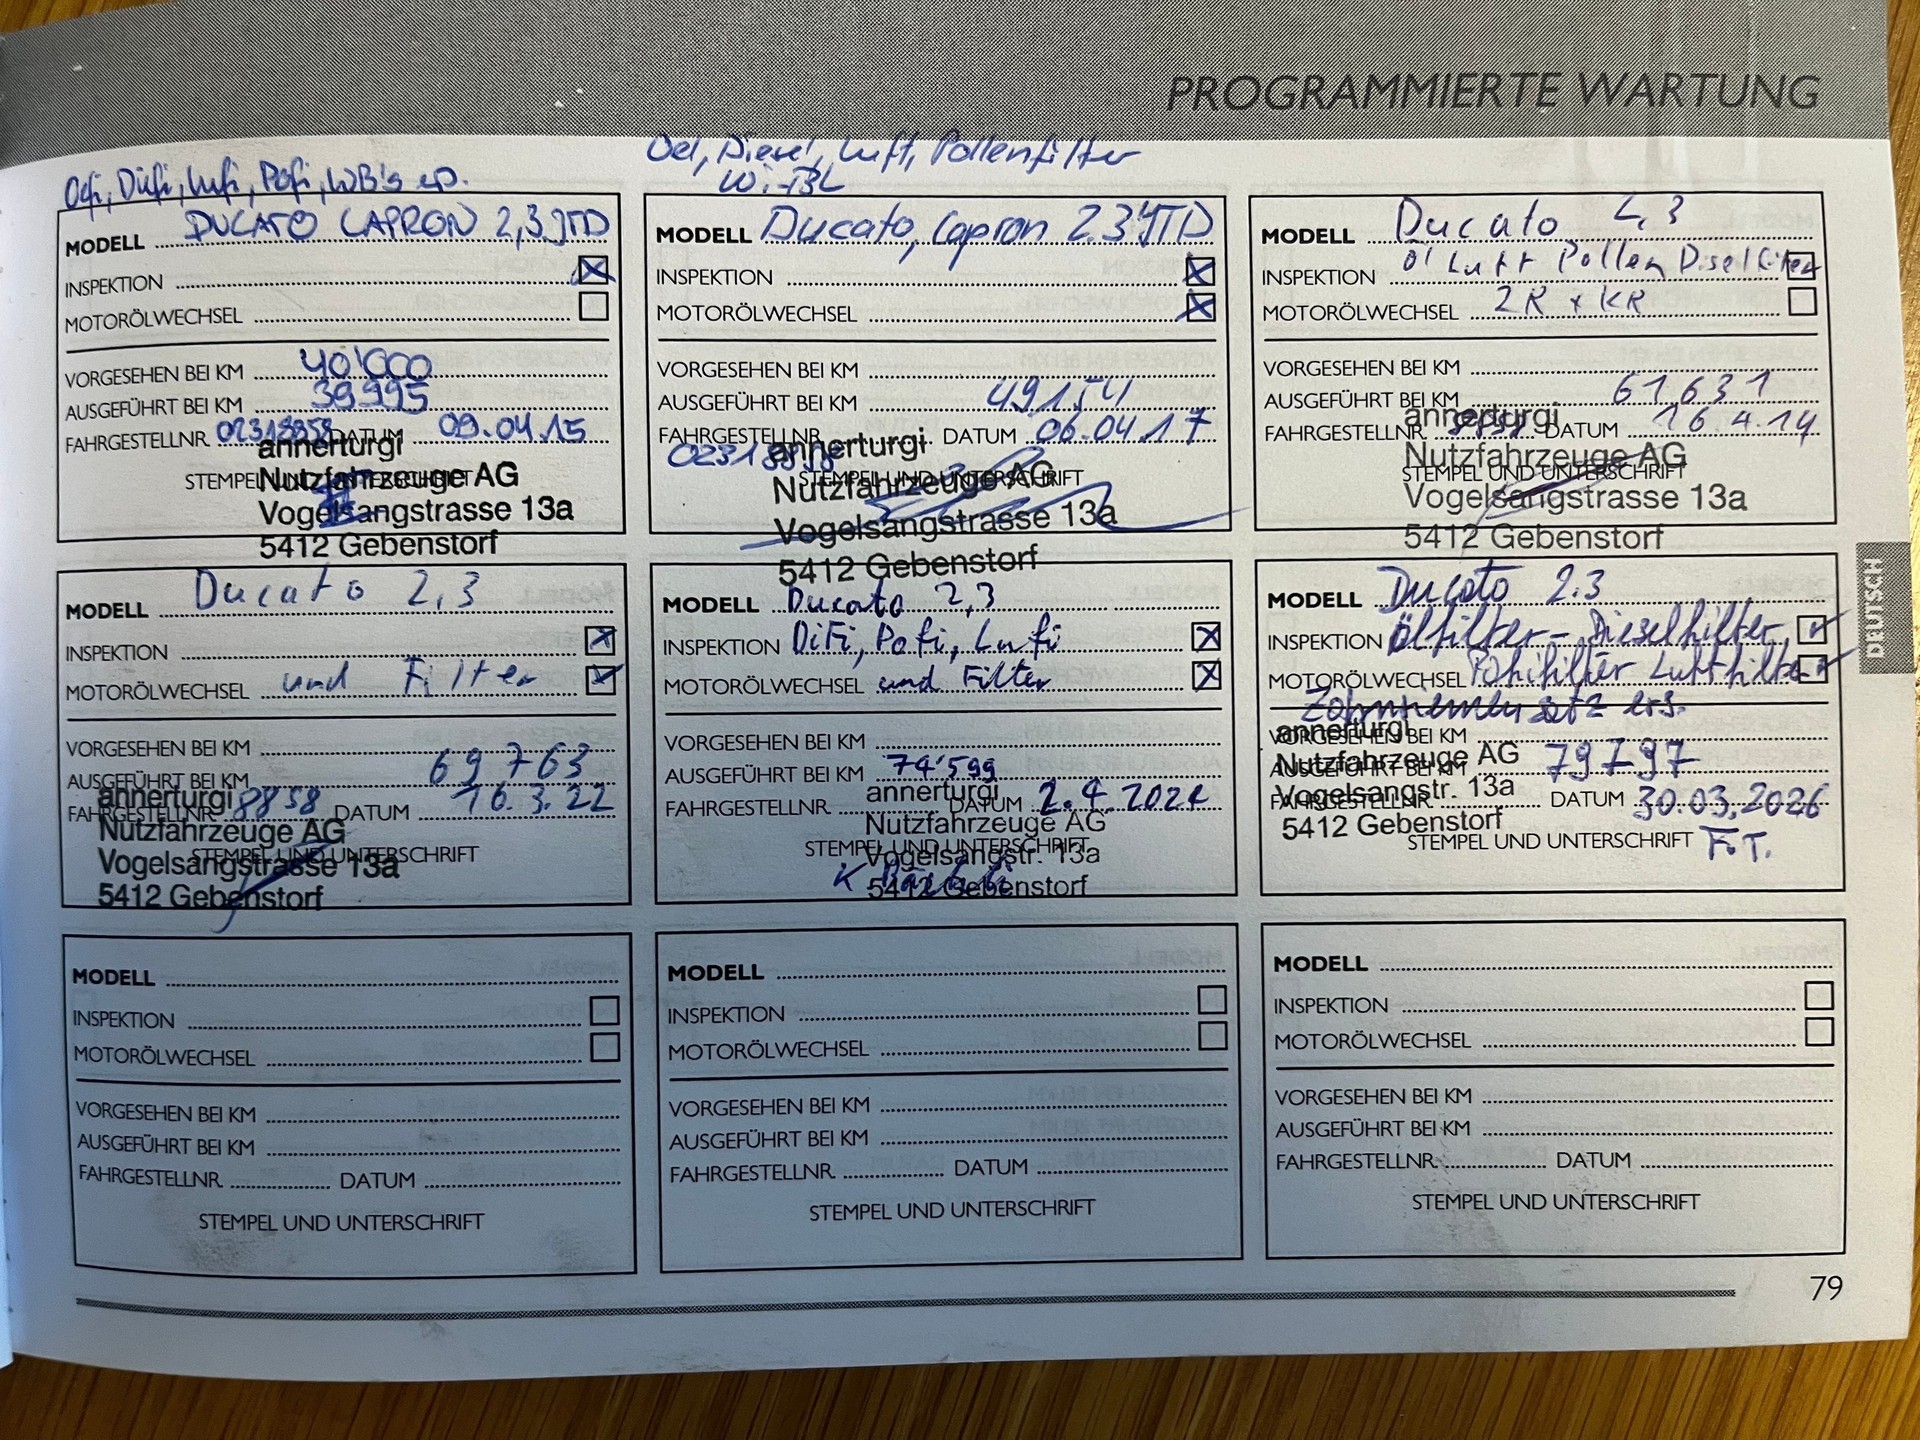 PROGRAMMIERTE WARTUNG
Oefi, Difi, Lufi, Pofi, WB's ep.
MODELL DUCATO CAPRON 2,3 JTD
INSPEKTION
MOTORÖLWECHSEL
VORGESEHEN BEI KM 40'000
AUSGEFÜHRT BEI KM 39995
FAHRGESTELLNR. 02318858 DATUM 09.04.15
STEMPEL UND UNTERSCHRIFT
annerturgi
Nutzfahrzeuge AG
Vogelsangstrasse 13a
5412 Gebenstorf
Oel, Diesel, Luft, Pollenfilter
Wi-BL
MODELL Ducato, Capron 2.3 JTD
INSPEKTION
MOTORÖLWECHSEL
VORGESEHEN BEI KM
AUSGEFÜHRT BEI KM 49154
FAHRGESTELLNR. DATUM 06.04.17
02318858
STEMPEL UND UNTERSCHRIFT
annerturgi
Nutzfahrzeuge AG
Vogelsangstrasse 13a
5412 Gebenstorf
MODELL Ducato 2,3
INSPEKTION Öl Luft Pollen Diselfilter
MOTORÖLWECHSEL 2R + KR
VORGESEHEN BEI KM
AUSGEFÜHRT BEI KM 61631
FAHRGESTELLNR. 8858 DATUM 16.4.19
STEMPEL UND UNTERSCHRIFT
annerturgi
Nutzfahrzeuge AG
Vogelsangstrasse 13a
5412 Gebenstorf
DEUTSCH
MODELL Ducato 2,3
INSPEKTION
MOTORÖLWECHSEL und Filter
VORGESEHEN BEI KM
AUSGEFÜHRT BEI KM 69763
FAHRGESTELLNR. 8858 DATUM 16.3.22
STEMPEL UND UNTERSCHRIFT
annerturgi
Nutzfahrzeuge AG
Vogelsangstrasse 13a
5412 Gebenstorf
MODELL Ducato 2,3
INSPEKTION DiFi, Pofi, Lufi
MOTORÖLWECHSEL und Filter
VORGESEHEN BEI KM
AUSGEFÜHRT BEI KM 74'599
FAHRGESTELLNR. DATUM 2.4.2024
STEMPEL UND UNTERSCHRIFT
annerturgi
Nutzfahrzeuge AG
Vogelsangstr. 13a
5412 Gebenstorf
MODELL Ducato 2.3
INSPEKTION Ölfilter - Dieselfilter
MOTORÖLWECHSEL Luftfilter
Zahnriemensatz ers.
VORGESEHEN BEI KM
AUSGEFÜHRT BEI KM 79797
FAHRGESTELLNR. DATUM 30.03.2026
STEMPEL UND UNTERSCHRIFT F.T.
annerturgi
Nutzfahrzeuge AG
Vogelsangstr. 13a
5412 Gebenstorf
MODELL
INSPEKTION
MOTORÖLWECHSEL
VORGESEHEN BEI KM
AUSGEFÜHRT BEI KM
FAHRGESTELLNR. DATUM
STEMPEL UND UNTERSCHRIFT
MODELL
INSPEKTION
MOTORÖLWECHSEL
VORGESEHEN BEI KM
AUSGEFÜHRT BEI KM
FAHRGESTELLNR. DATUM
STEMPEL UND UNTERSCHRIFT
MODELL
INSPEKTION
MOTORÖLWECHSEL
VORGESEHEN BEI KM
AUSGEFÜHRT BEI KM
FAHRGESTELLNR. DATUM
STEMPEL UND UNTERSCHRIFT
79